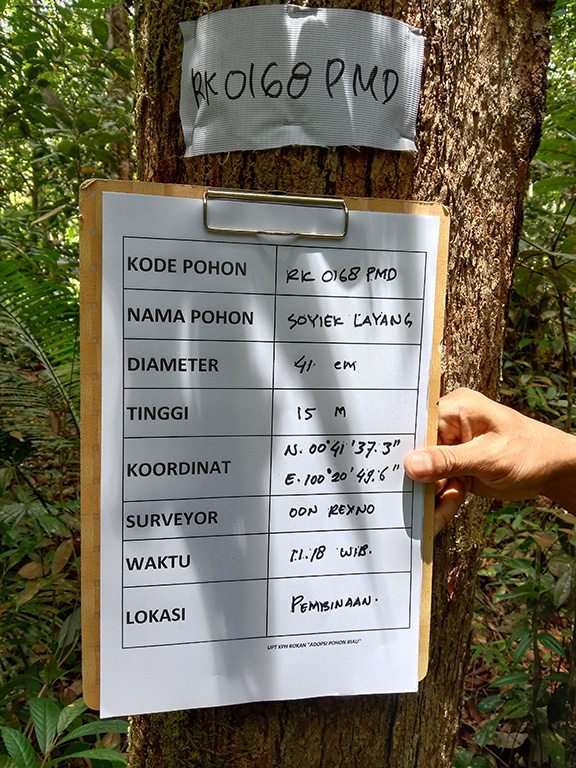 RK 0168 PMD
KODE POHON RK 0168 PMD
NAMA POHON SOYIEK LAYANG
DIAMETER 41 cm
TINGGI 15 M
KOORDINAT N. 00°41'37.3"
E. 100°20'49.6"
SURVEYOR OON REXNO
WAKTU 11.18 WIB.
LOKASI PEMBINAAN.
UPT KPH ROKAN "ADOPSI POHON RIAU"